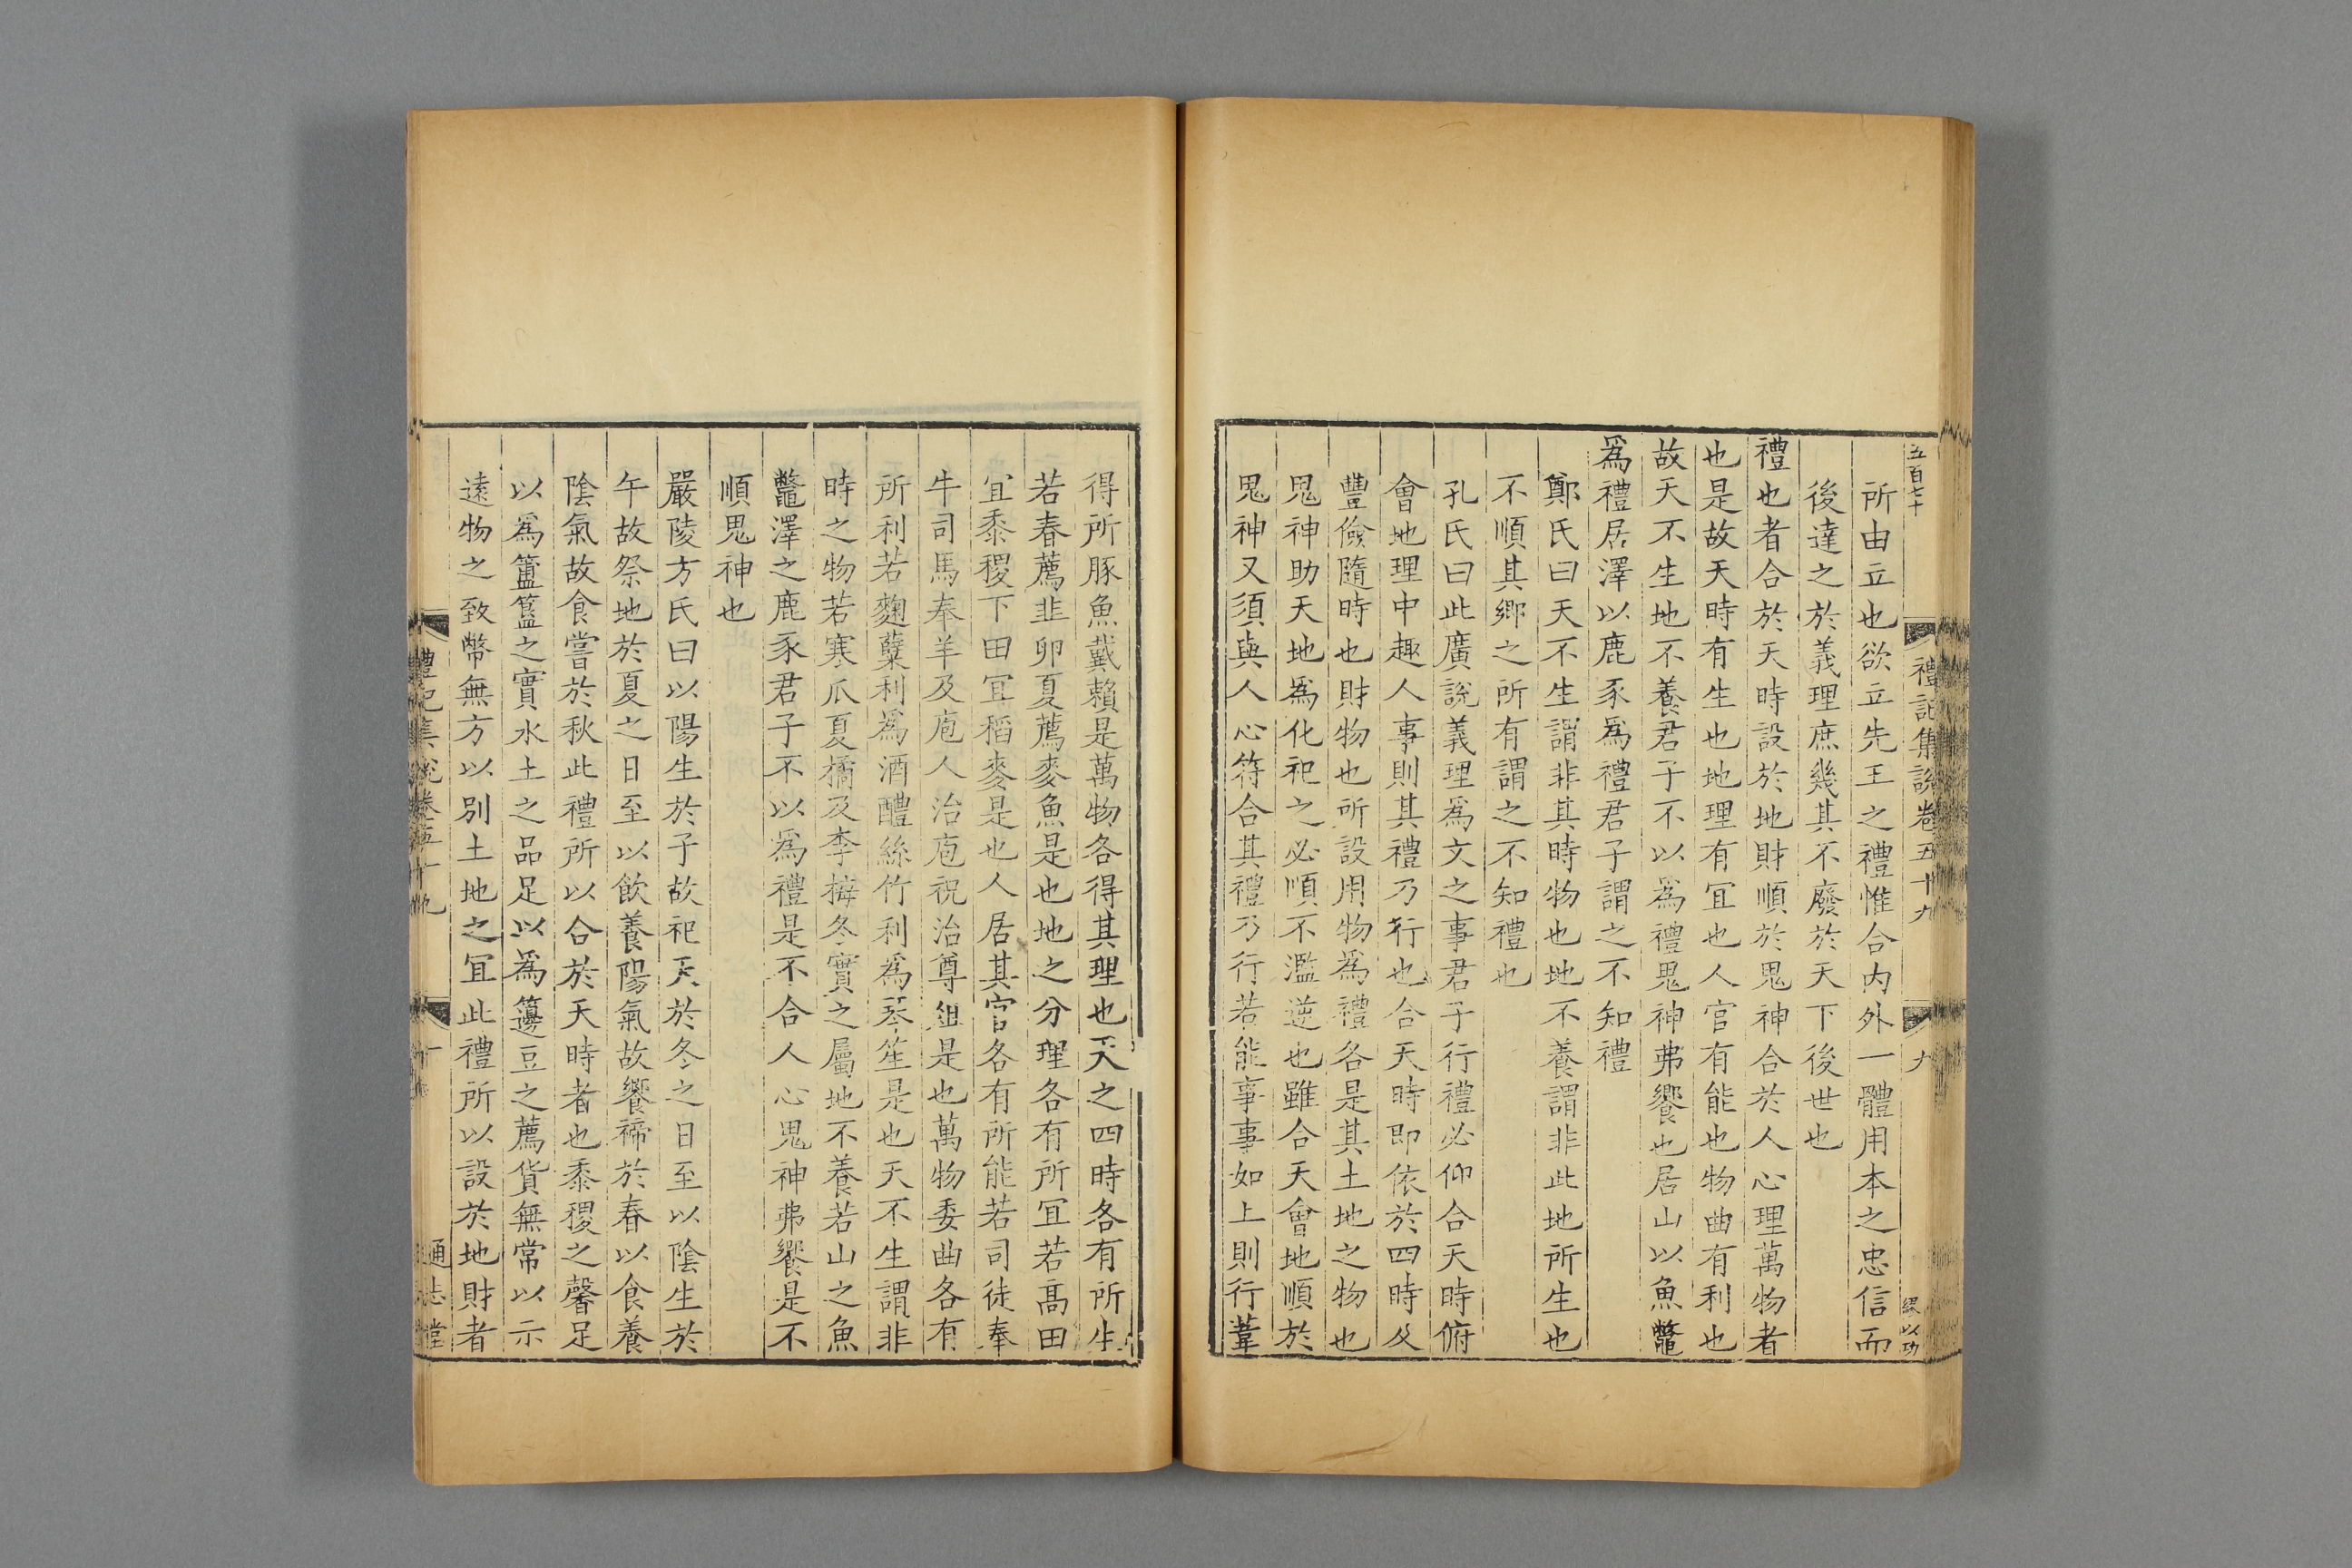 五百七十
禮記集說卷五十九
九
繆以功
所由立也欲立先王之禮惟合內外一體用本之忠信而
後達之於義理庶幾其不廢於天下後世也
禮也者合於天時設於地財順於鬼神合於人心理萬物者
也是故天時有生也地理有宜也人官有能也物曲有利也
故天不生地不養君子不以爲禮鬼神弗饗也居山以魚鼈
爲禮居澤以鹿豕爲禮君子謂之不知禮
鄭氏曰天不生謂非其時物也地不養謂非此地所生也
不順其鄉之所有謂之不知禮也
孔氏曰此廣說義理爲文之事君子行禮必仰合天時俯
會地理中趣人事則其禮乃行也合天時即依於四時及
豐儉隨時也財物也所設用物爲禮各是其土地之物也
鬼神助天地爲化祀之必順不濫逆也雖合天會地順於
鬼神又須與人心符合其禮乃行若能事事如上則行葦
得所豚魚戴賴是萬物各得其理也天之四時各有所生
若春薦韭卯夏薦麥魚是也地之分理各有所宜若高田
宜黍稷下田宜稻麥是也人居其官各有所能若司徒奉
牛司馬奉羊及庖人治庖祝治尊俎是也萬物委曲各有
所利若麴糵利爲酒醴絲竹利爲琴笙是也天不生謂非
時之物若寒瓜夏橘及李梅冬實之屬地不養若山之魚
鼈澤之鹿豕君子不以爲禮是不合人心鬼神弗饗是不
順鬼神也
嚴陵方氏曰以陽生於子故祀天於冬之日至以陰生於
午故祭地於夏之日至以飲養陽氣故饗禘於春以食養
陰氣故食嘗於秋此禮所以合於天時者也黍稷之馨足
以爲簠簋之實水土之品足以爲籩豆之薦貨無常以示
遠物之致幣無方以別土地之宜此禮所以設於地財者
禮記集說卷五十九
十
通志堂